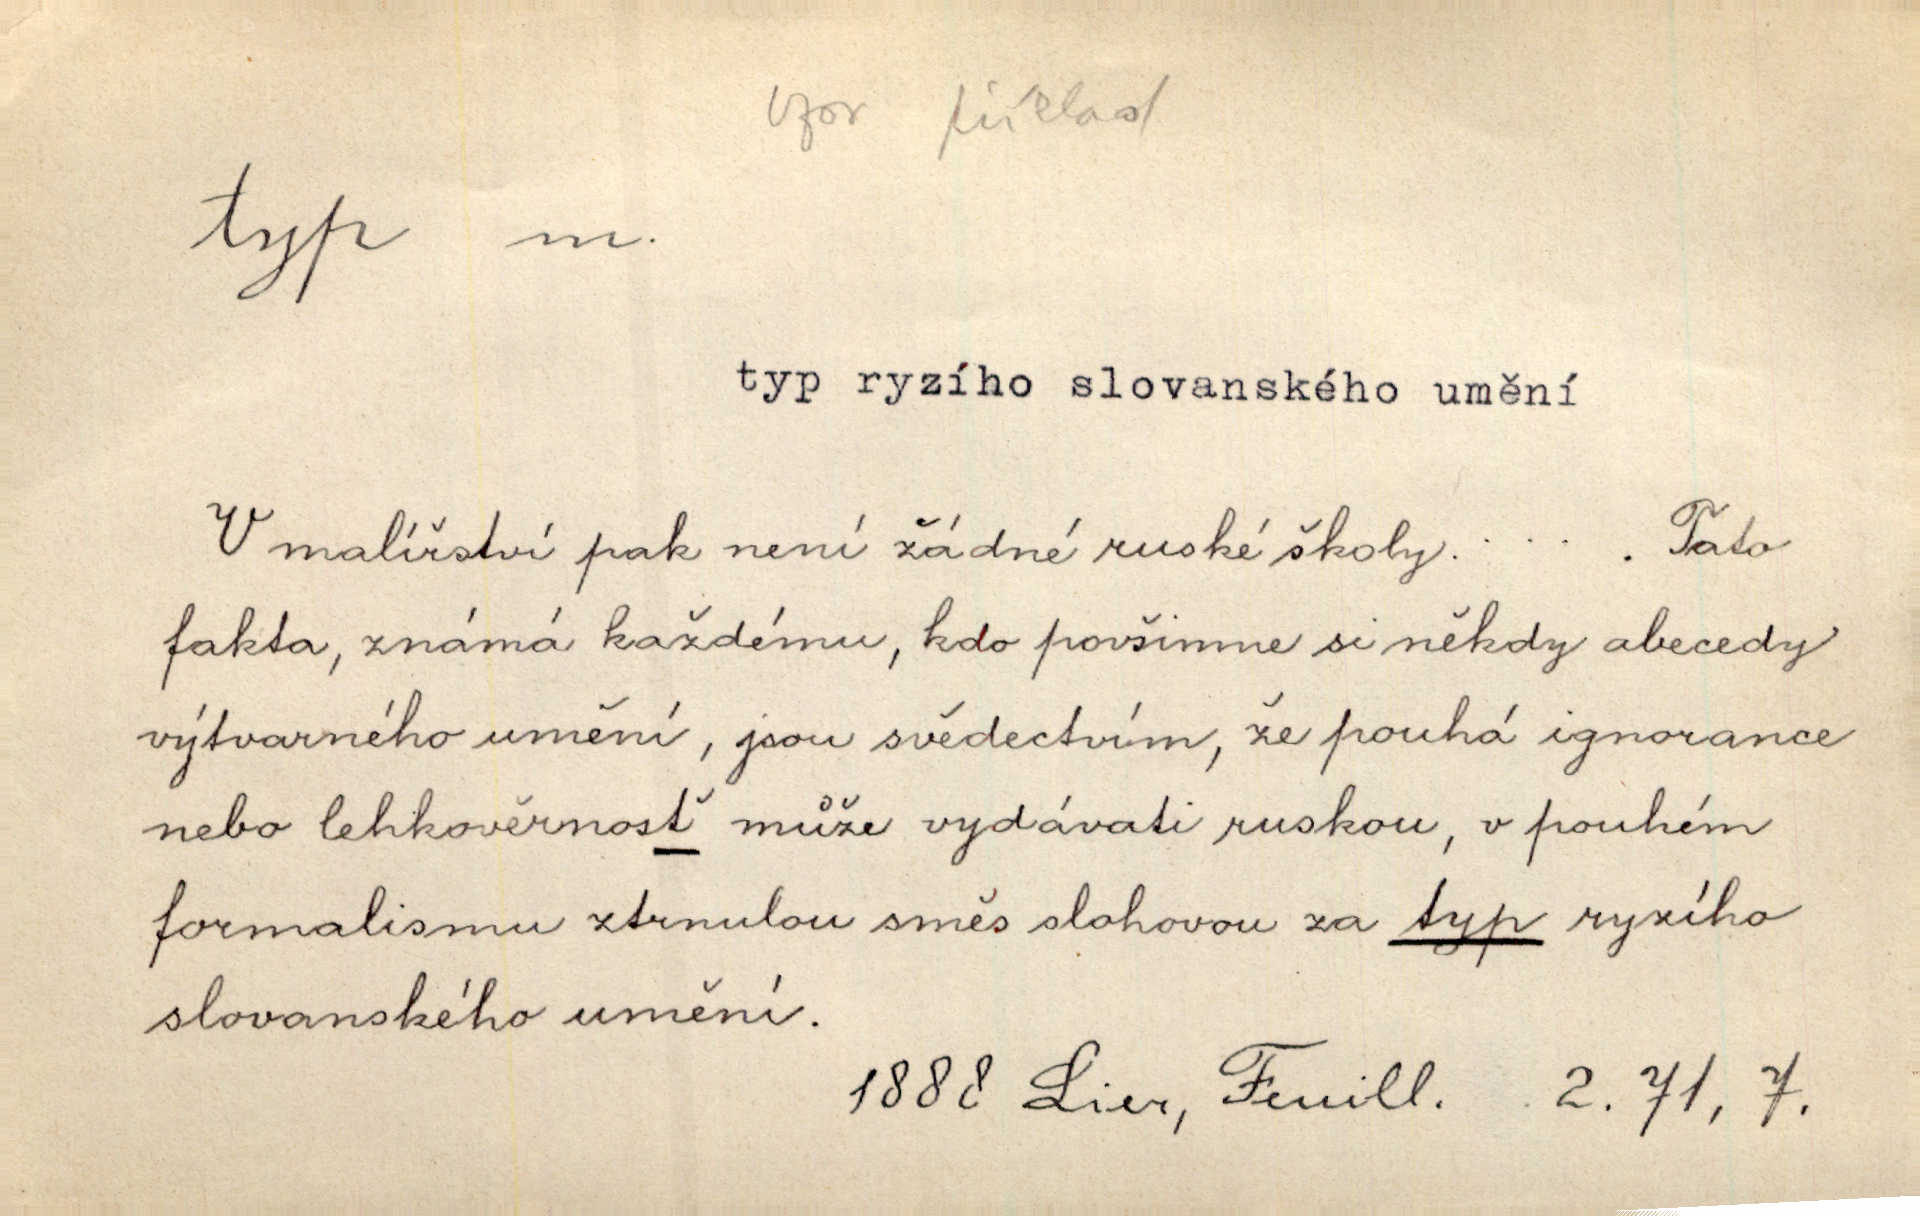 vzor příklad
typ m.
typ ryzího slovanského umění
V malířství pak není žádné ruské školy. . . . . Tato
fakta, známá každému, kdo povšimne si někdy abecedy
výtvarného umění, jsou svědectvím, že pouhá ignorance
nebo lehkověrnosť může vydávati ruskou, v pouhém
formalismu ztrnulou směs slohovou za typ ryzího
slovanského umění.
1888 Lier, Feuill. 2. 71, 7.